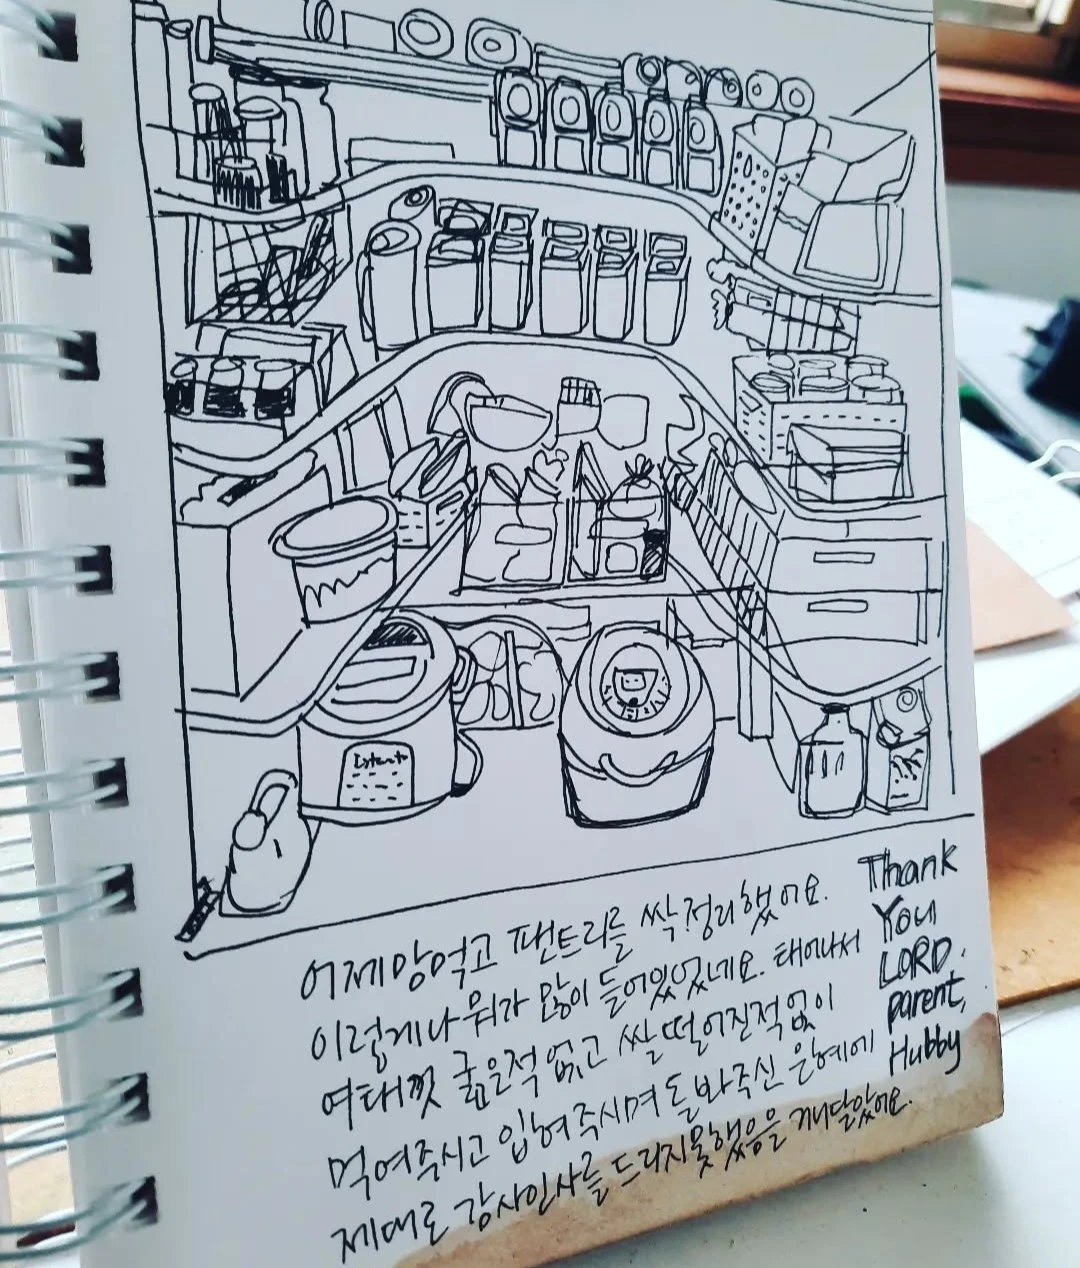 Instant
어제 맘먹고 팬트리를 싹 정리했어요.
이렇게나 뭐가 많이 들어있었네요. 태어나서
여태껏 굶은적 없고 쌀 떨어진적 없이
먹여주시고 입혀주시며 돌봐주신 은혜에
제대로 감사인사를 드리지못했음을 깨달았어요.
Thank
You
LORD.
parent,
Hubby